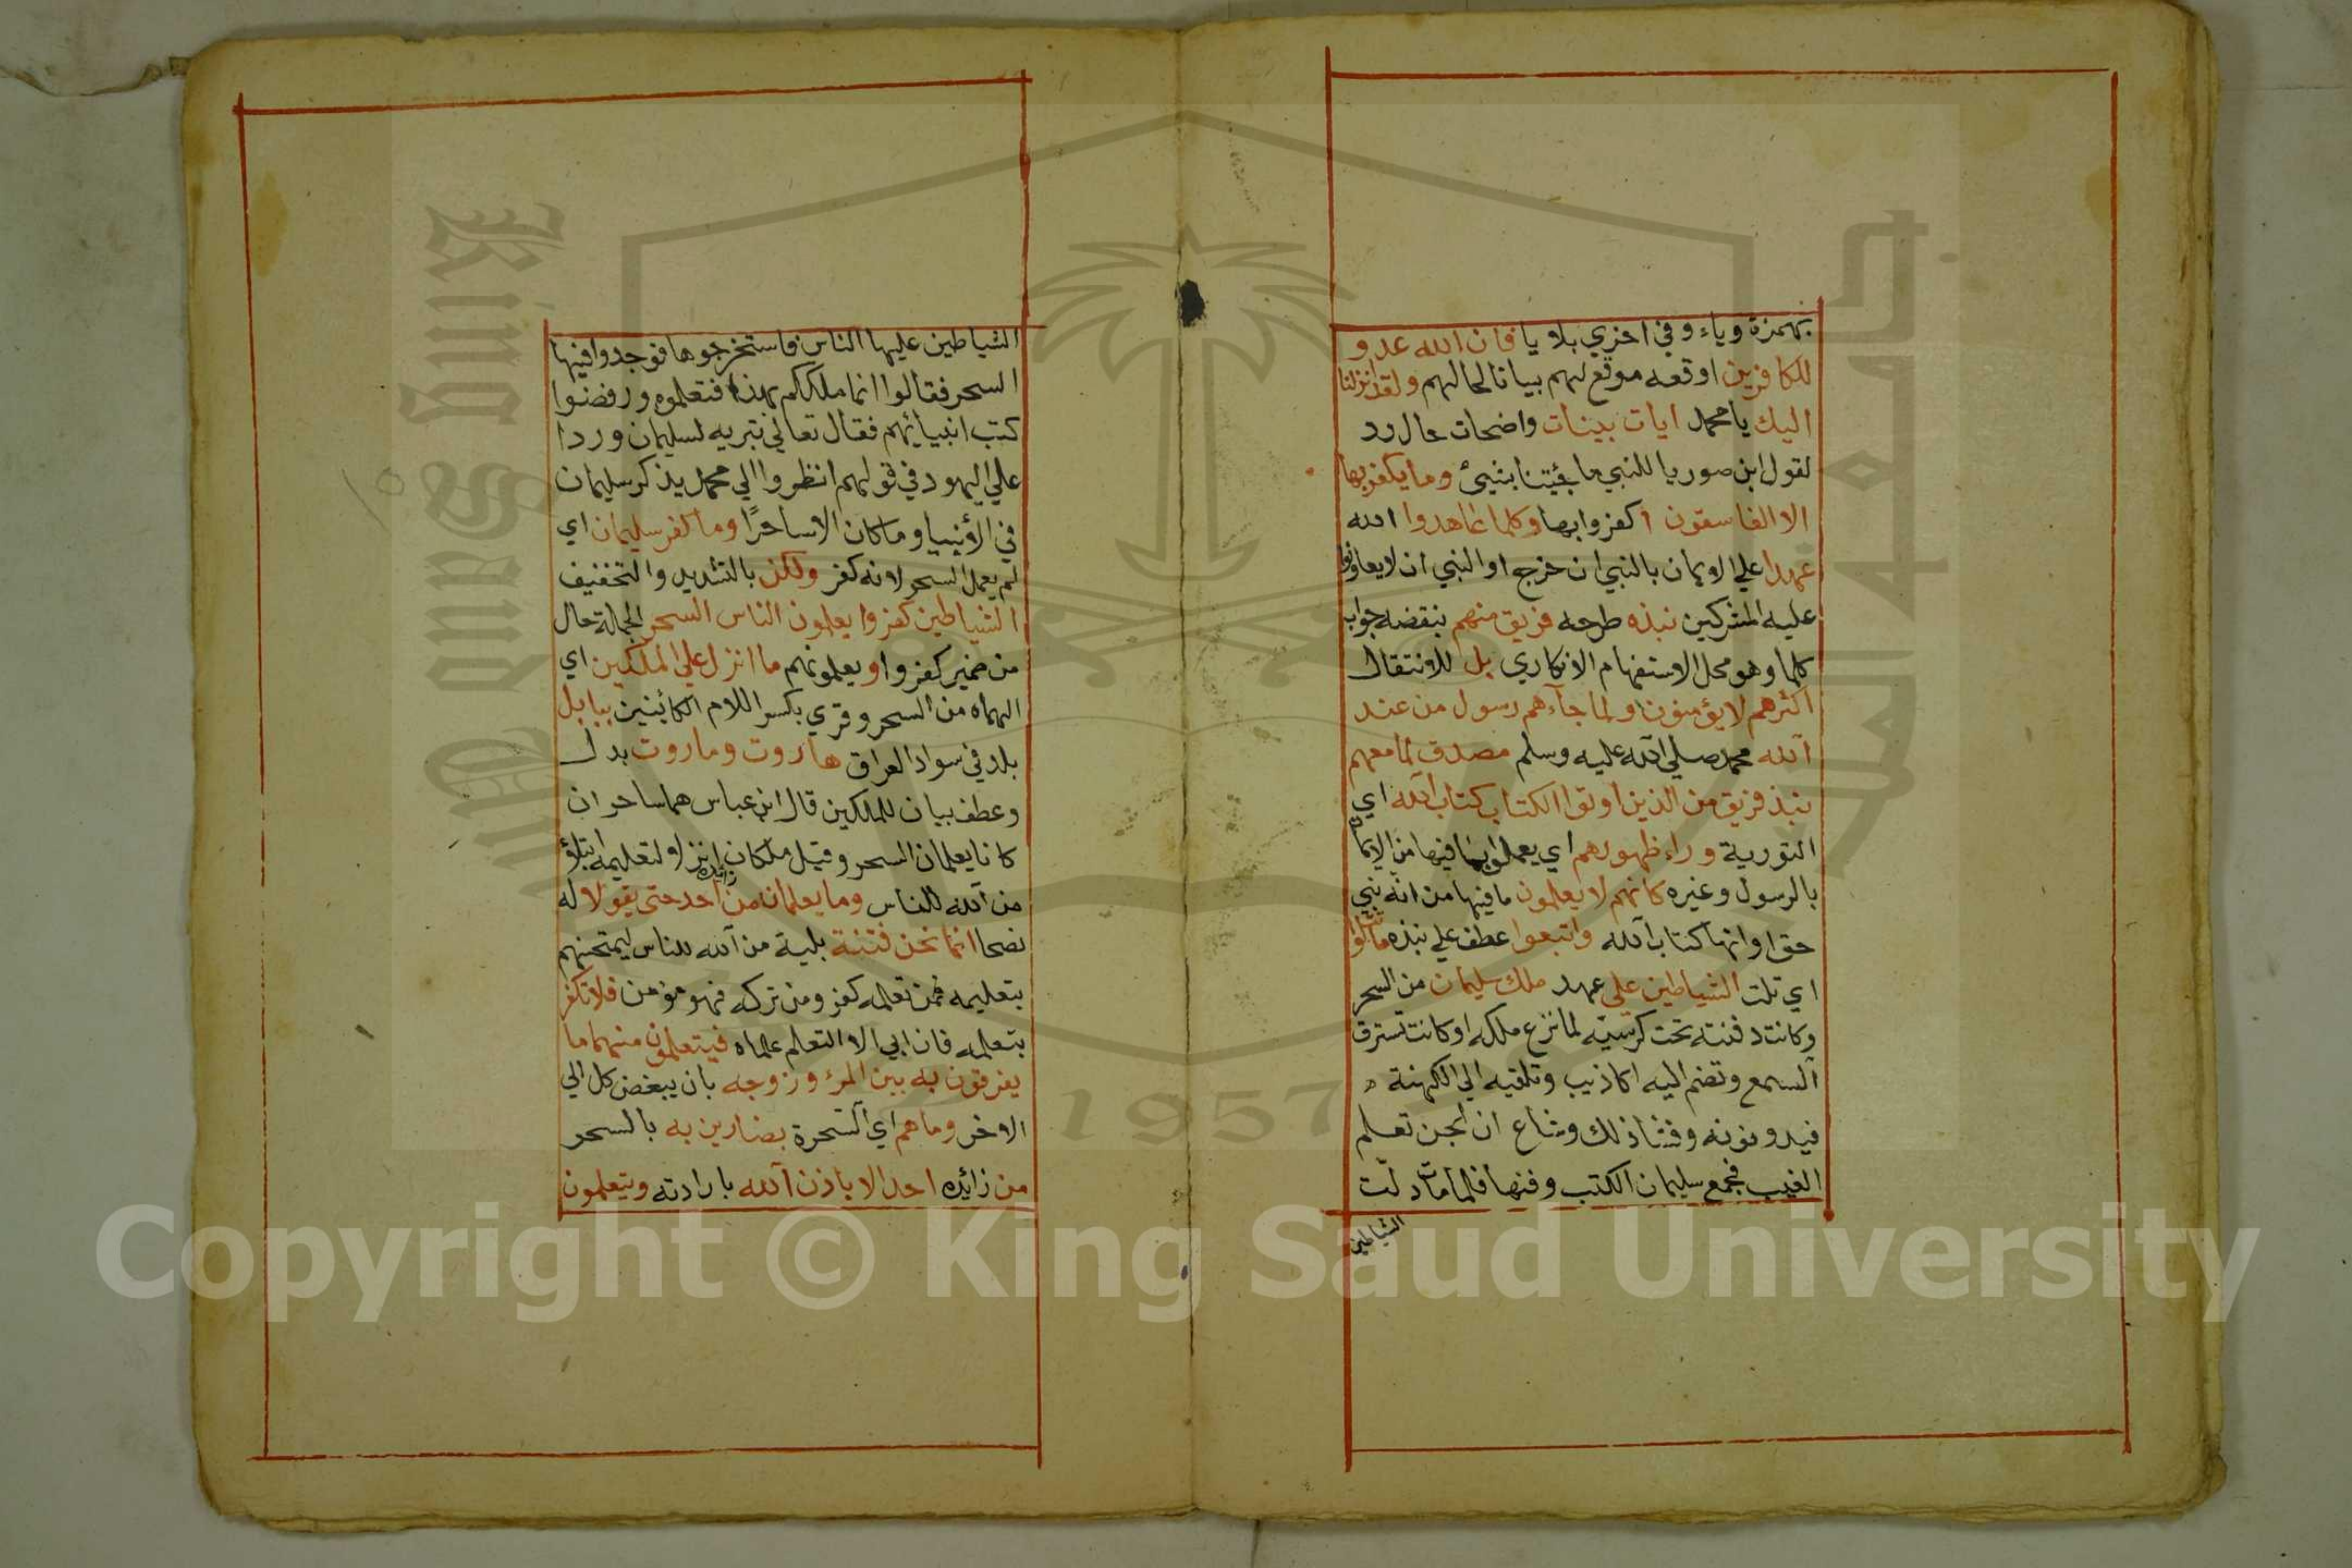 بهمزة وياء وفي اخري بلا يا فان الله عدو
للكافرين اوقعه موقع لهم بيانا لحالهم ولقد انزلنا
اليك يا محمد ايات بينات واضحات حال رد
لقول ابن صوريا للنبي ما جئيتنا بشيئ وما يكفر بها
الا الفاسقون اكفروا بها وكلما عاهدوا الله
عهدا علي الايمان بالنبي ان خرج او النبي ان لا يعاونوا
عليه المشركين نبذه طرحه فريق منهم بنقضه جواب
كلما وهو محل الاستفهام الانكاري بل للانتقال
اكثرهم لا يؤمنون ولما جآءهم رسول من عند
الله محمد صلي الله عليه وسلم مصدق لما معهم
نبذ فريق من الذين اوتوا الكتاب كتاب الله اي
التورية وراء ظهورهم اي يعملوا بما فيها من الايمان
بالرسول وغيره كانهم لا يعلمون ما فيها من انه نبي
حق او انها كتاب الله واتبعوا عطف علي نبذه ما تتلوا
اي تلت الشياطين علي عهد ملك سليمان من السحر
وكانت دفنته تحت كرسيه لما نزع ملكه او كانت تسترق
السمع وتضم اليه اكاذيب وتلقيه الي الكهنة
فيدونونه وفشا ذلك وشاع ان الجن تعلم
الغيب فجمع سليمان الكتب وفنها فلما مات دلت
الشياطين
الشياطين عليها الناس فاستخرجوها فوجدوا فيها
السحر فقالوا انما ملككم بهذا فتعلموه ورفضوا
كتب انبيائهم فقال تعالي تبريه لسليمان وردا
علي اليهود في قولهم انظروا الي محمد يذكر سليمان
في الأنبيا وما كان الا ساحرًا وما كفر سليمان اي
لم يعمل السحر لانه كفر ولكن بالتشديد والتخفيف
الشياطين كفروا يعلمون الناس السحر الجملة حال
من ضمير كفروا ويعلمونهم ما انزل علي الملكين اي
الهماه من السحر وقري بكسر اللام الكائنين ببابل
بلد في سواد العراق هاروت وماروت بدل
وعطف بيان للملكين قال ابن عباس هما ساحران
كانا يعلمان السحر وقيل ملكان انزلا لتعليمه ابتلاؤ
من الله للناس وما يعلمان من زائده احد حتى يقولا له
نصحا انما نحن فتنة بلية من الله للناس ليمتحنهم
بتعليمه فمن تعلمه كفر ومن تركه فهو مؤمن فلا تكفر
بتعلمه فان ابي الا التعلم علماه فيتعلمون منهما ما
يفرقون به بين المرء وزوجه بان يبغض كل الي
الاخر وما هم اي السحرة بضارين به بالسحر
من زائده احد الا باذن الله بارادته ويتعلمون
١٥
King Saud University
جامعة الملك سعود
1957
Copyright © King Saud University